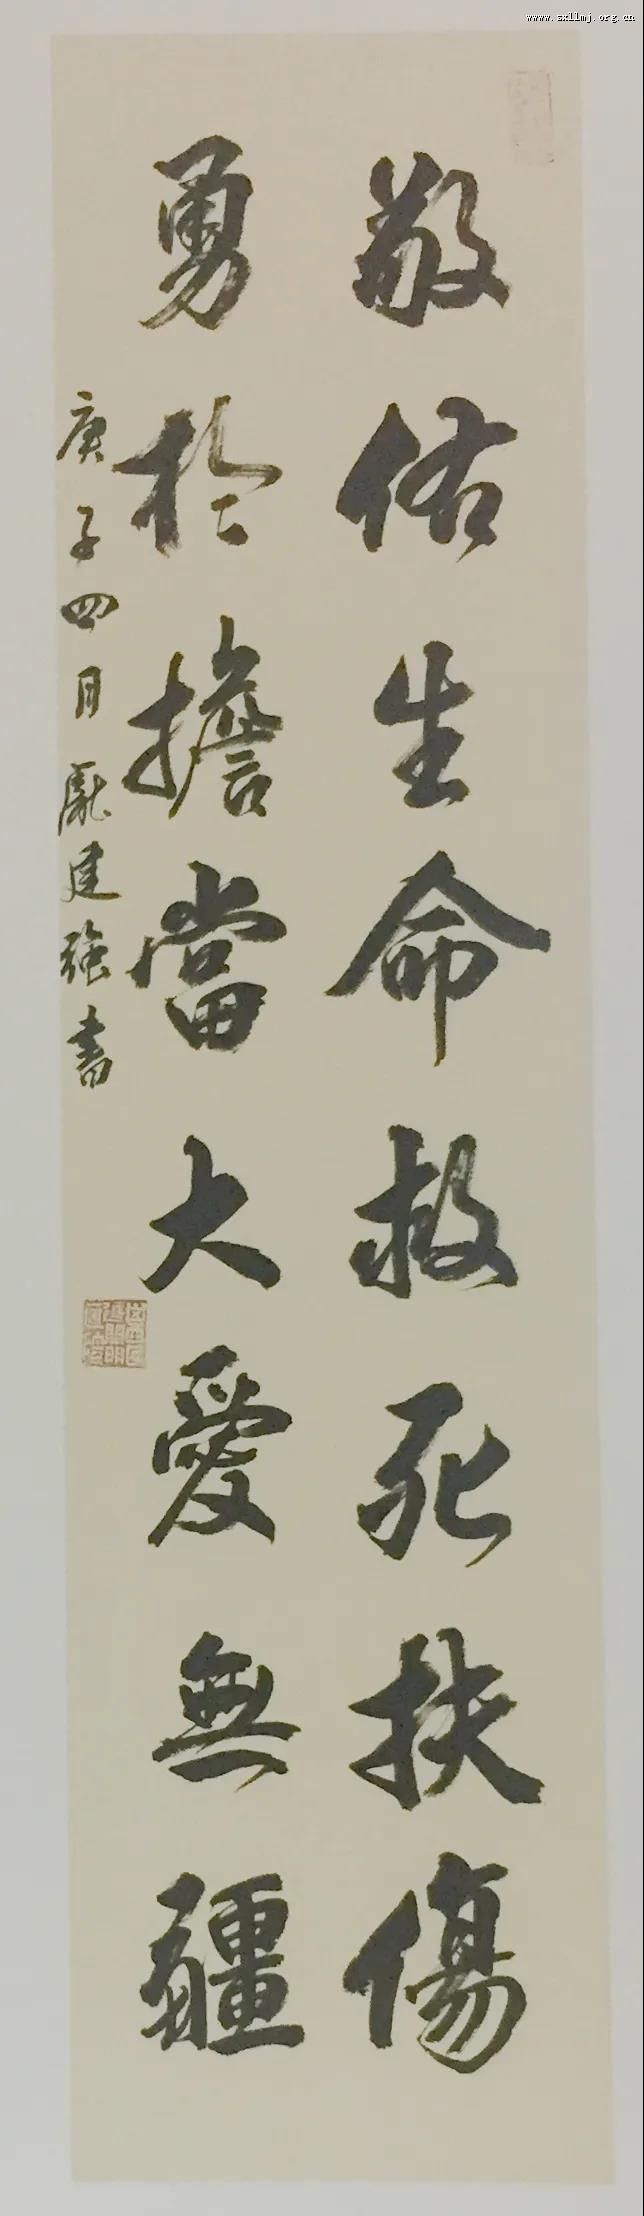 www.sxllmj.org.cn
敬佑生命救死扶傷
勇於擔當大愛無疆
庚子四月龐建強書